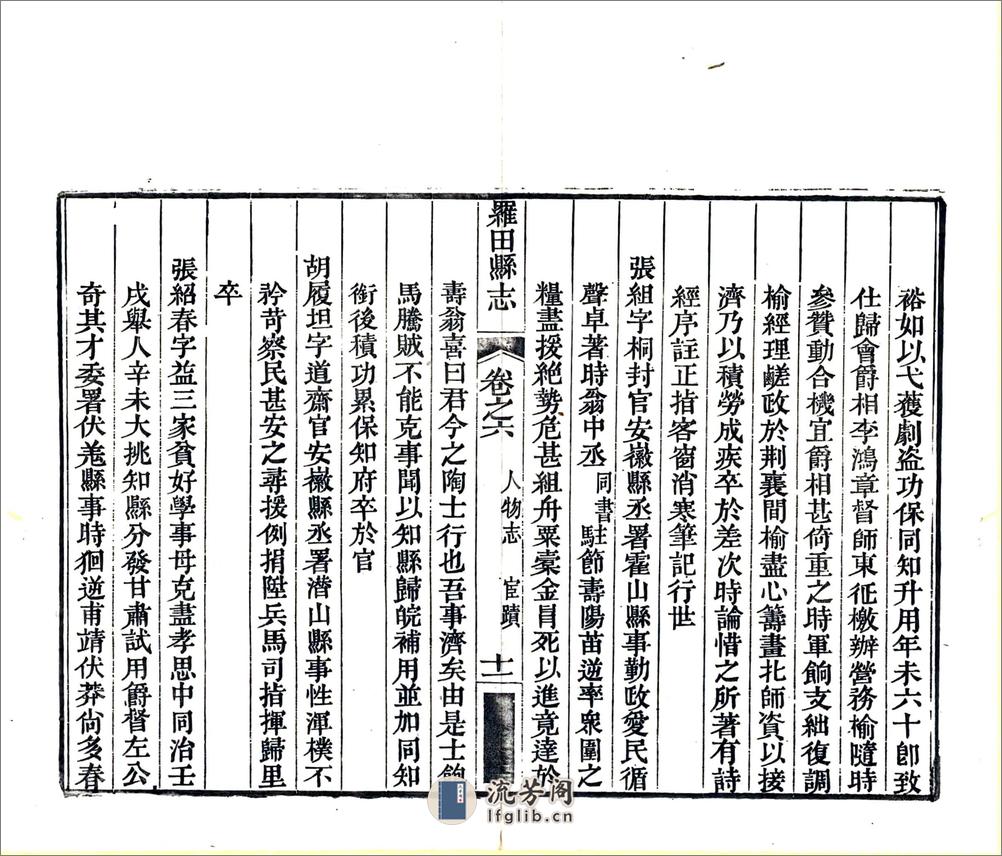 裕如以弋獲劇盜功保同知升用年未六十卽致
仕歸會爵相李鴻章督師東征檄辦營務榆隨時
參贊動合機宜爵相甚倚重之時軍餉支絀復調
榆經理鹺政於荆襄間榆盡心籌畫北師資以接
濟乃以積勞成疾卒於差次時論惜之所著有詩
經序註正指客窗消寒筆記行世
張組字桐封官安徽縣丞署霍山縣事勤政愛民循
聲卓著時翁中丞同書駐節壽陽苗逆率衆圍之
糧盡援絕勢危甚組舟粟橐金冒死以進竟達於
羅田縣志 卷之六 人物志 宦蹟 十一
壽翁喜曰君今之陶士行也吾事濟矣由是士飽
馬騰賊不能克事聞以知縣歸皖補用並加同知
銜後積功累保知府卒於官
胡履坦字道齋官安徽縣丞署潛山縣事性渾樸不
矜苛察民甚安之尋援例捐陞兵馬司指揮歸里
卒
張紹春字益三家貧好學事母克盡孝思中同治壬
戌舉人辛未大挑知縣分發甘肅試用爵督左公
奇其才委署伏羌縣事時狪逆甫靖伏莽尙多春
流芳阁
lfglib.cn